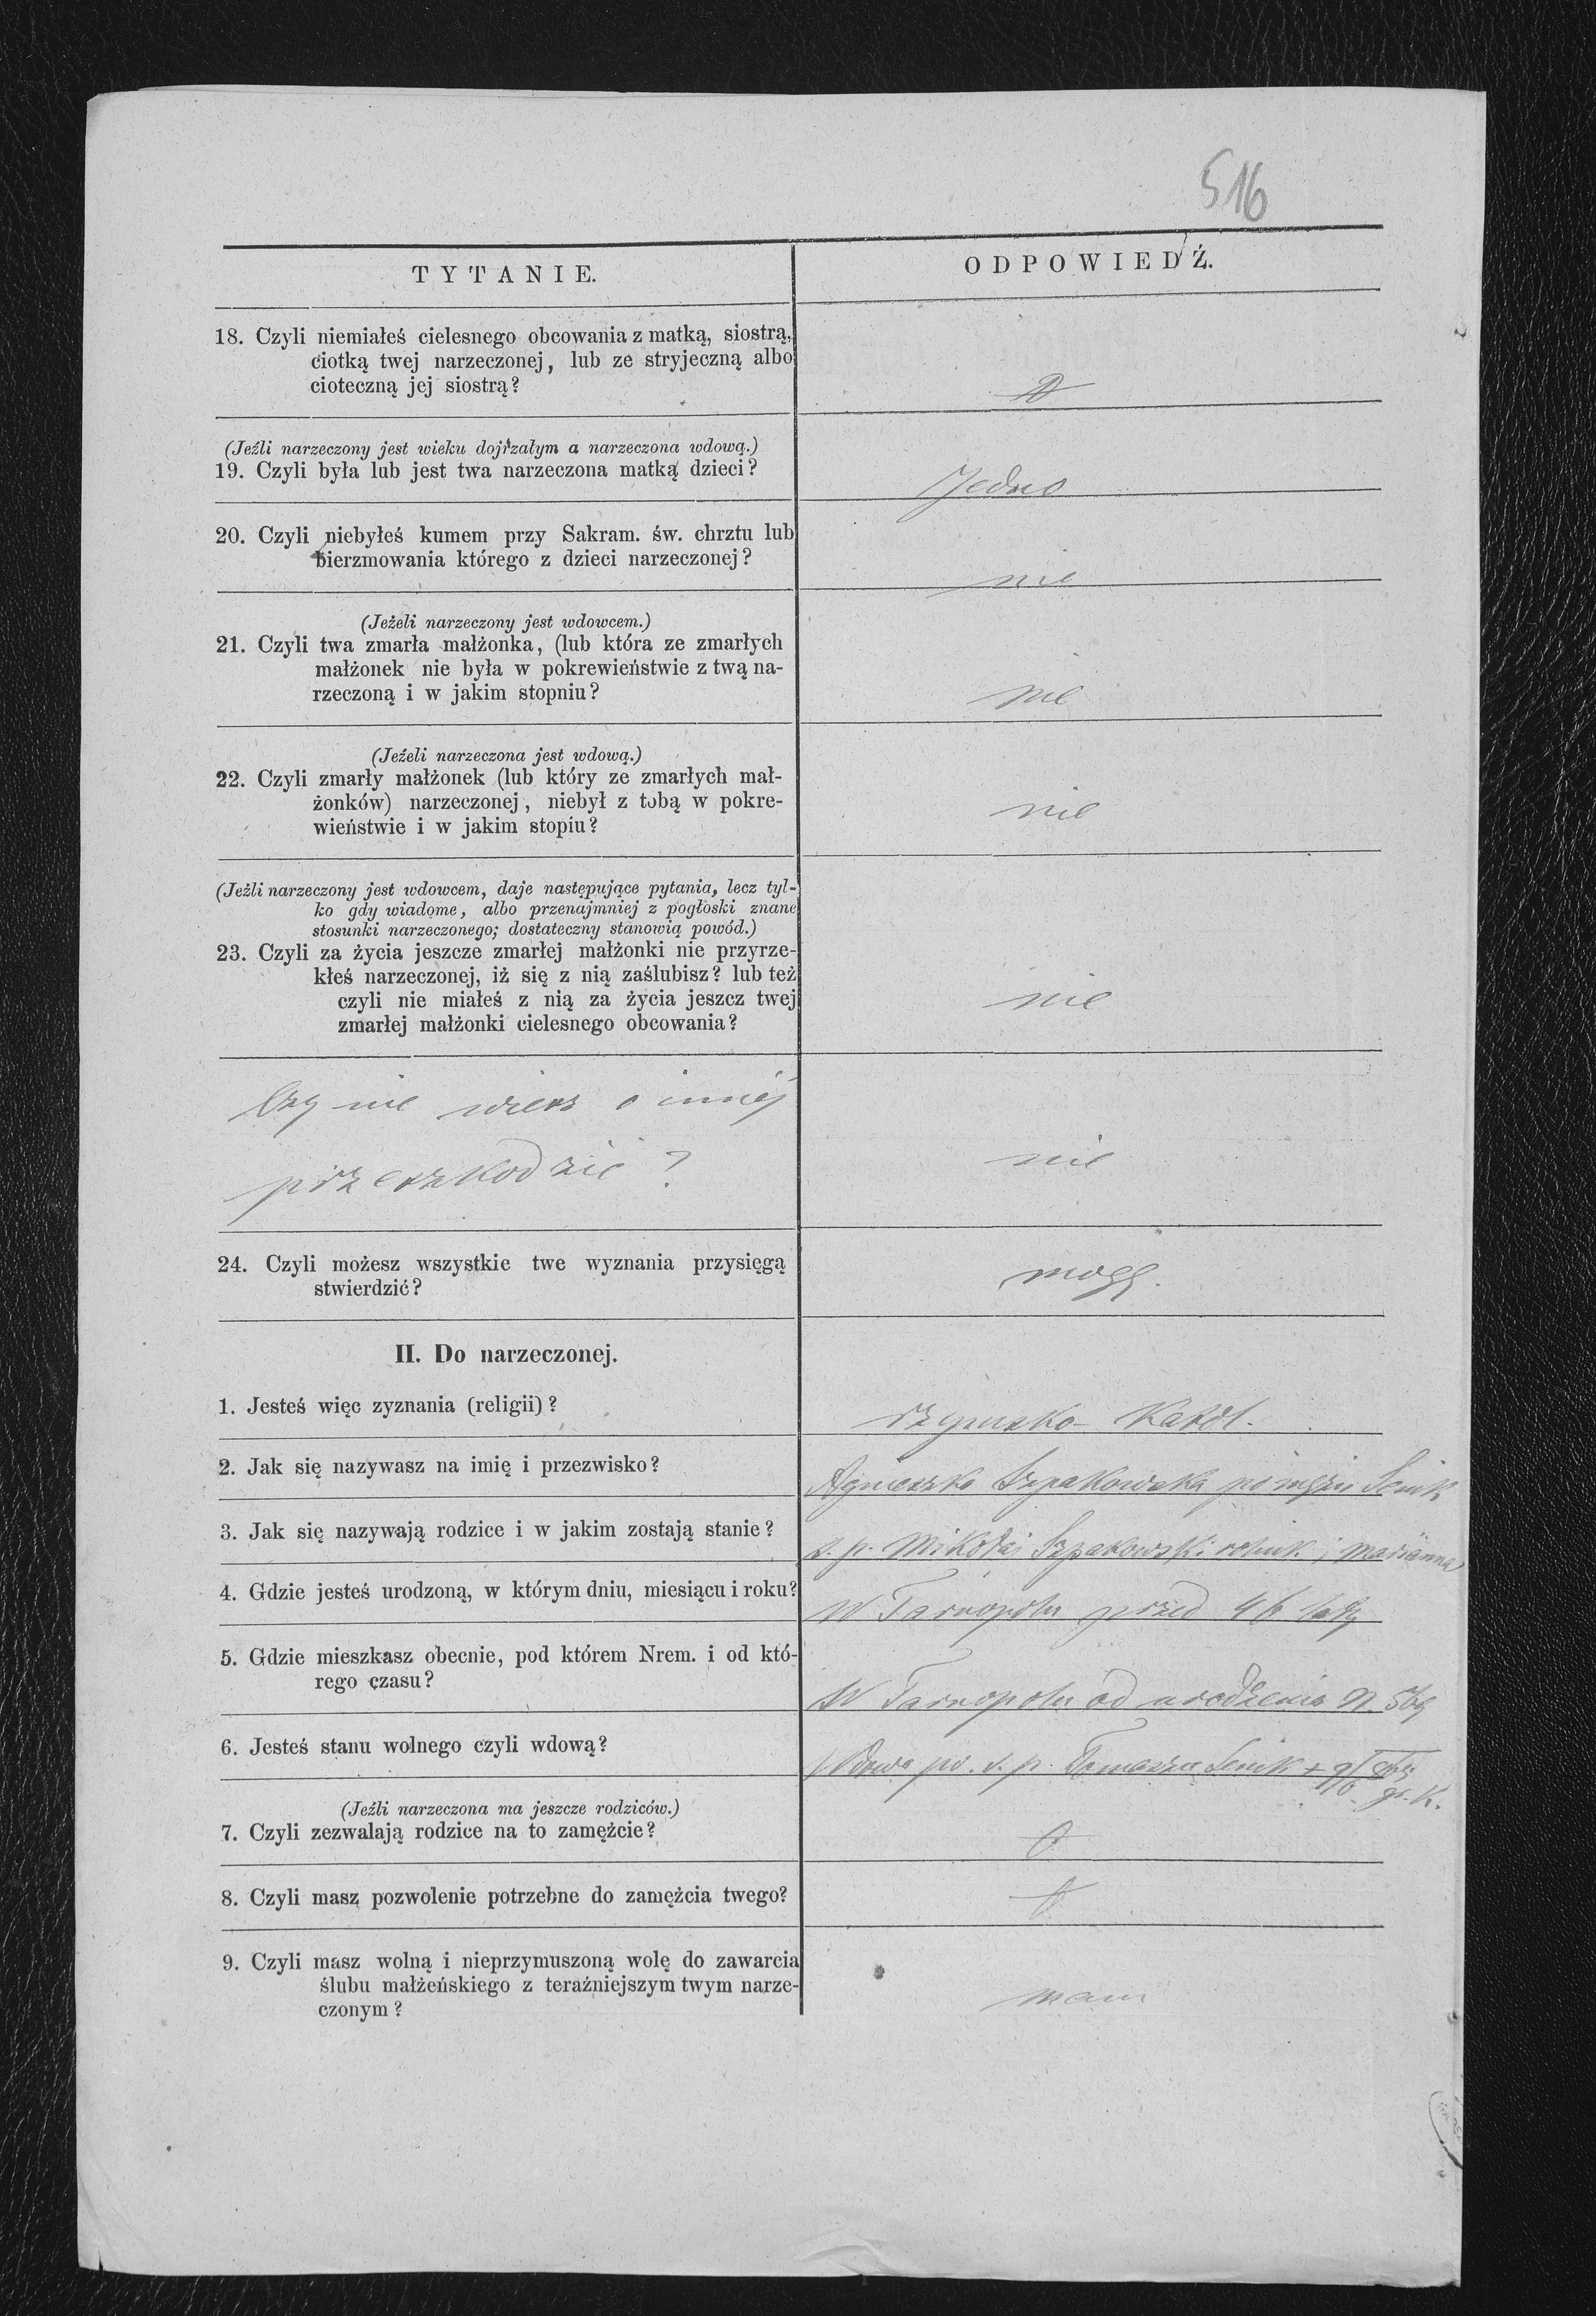 516
TYTANIE.
ODPOWIEDŹ.
18. Czyli niemiałeś cielesnego obcowania z matką, siostrą,
ciotką twej narzeczonej, lub ze stryjeczną albo
cioteczną jej siostrą?
(Jeźli narzeczony jest wieku dojrzałym a narzeczona wdową.)
19. Czyli była lub jest twa narzeczona matką dzieci?
Jedno
20. Czyli niebyłeś kumem przy Sakram. św. chrztu lub
bierzmowania którego z dzieci narzeczonej?
nie
(Jeżeli narzeczony jest wdowcem.)
21. Czyli twa zmarła małżonka, (lub która ze zmarłych
małżonek nie była w pokrewieństwie z twą na-
rzeczoną i w jakim stopniu?
nie
(Jeżeli narzeczona jest wdową.)
22. Czyli zmarły małżonek (lub który ze zmarłych mał-
żonków) narzeczonej, niebył z tobą w pokre-
wieństwie i w jakim stopiu?
nie
(Jeźli narzeczony jest wdowcem, daje następujące pytania, lecz tyl-
ko gdy wiadome, albo przenajmniej z pogłoski znane
stosunki narzeczonego; dostateczny stanowią powód.)
23. Czyli za życia jeszcze zmarłej małżonki nie przyrze-
kłeś narzeczonej, iż się z nią zaślubisz? lub też
czyli nie miałeś z nią za życia jeszcz twej
zmarłej małżonki cielesnego obcowania?
nie
Czy nie wiesz o innej
przeszkodzie?
nie
24. Czyli możesz wszystkie twe wyznania przysięgą
stwierdzić?
mogę.
II. Do narzeczonej.
1. Jesteś więc zyznania (religii)?
rzymsko-katol.
2. Jak się nazywasz na imię i przezwisko?
Agnieszka Szpakowska po mężu Senik
3. Jak się nazywają rodzice i w jakim zostają stanie?
ś. p. Mikołaj Szpakowski rolnik i Marianna
4. Gdzie jesteś urodzoną, w którym dniu, miesiącu i roku?
W Tarnopolu przed 46 laty
5. Gdzie mieszkasz obecnie, pod którem Nrem. i od któ-
rego czasu?
W Tarnopolu od urodzenia N. 569
6. Jesteś stanu wolnego czyli wdową?
Wdowa po ś. p. Tomaszu Senik +
gr. K.
(Jeźli narzeczona ma jeszcze rodziców.)
7. Czyli zezwalają rodzice na to zamężcie?
8. Czyli masz pozwolenie potrzebne do zamężcia twego?
9. Czyli masz wolną i nieprzymuszoną wolę do zawarcia
ślubu małżeńskiego z teraźniejszym twym narze-
czonym?
mam